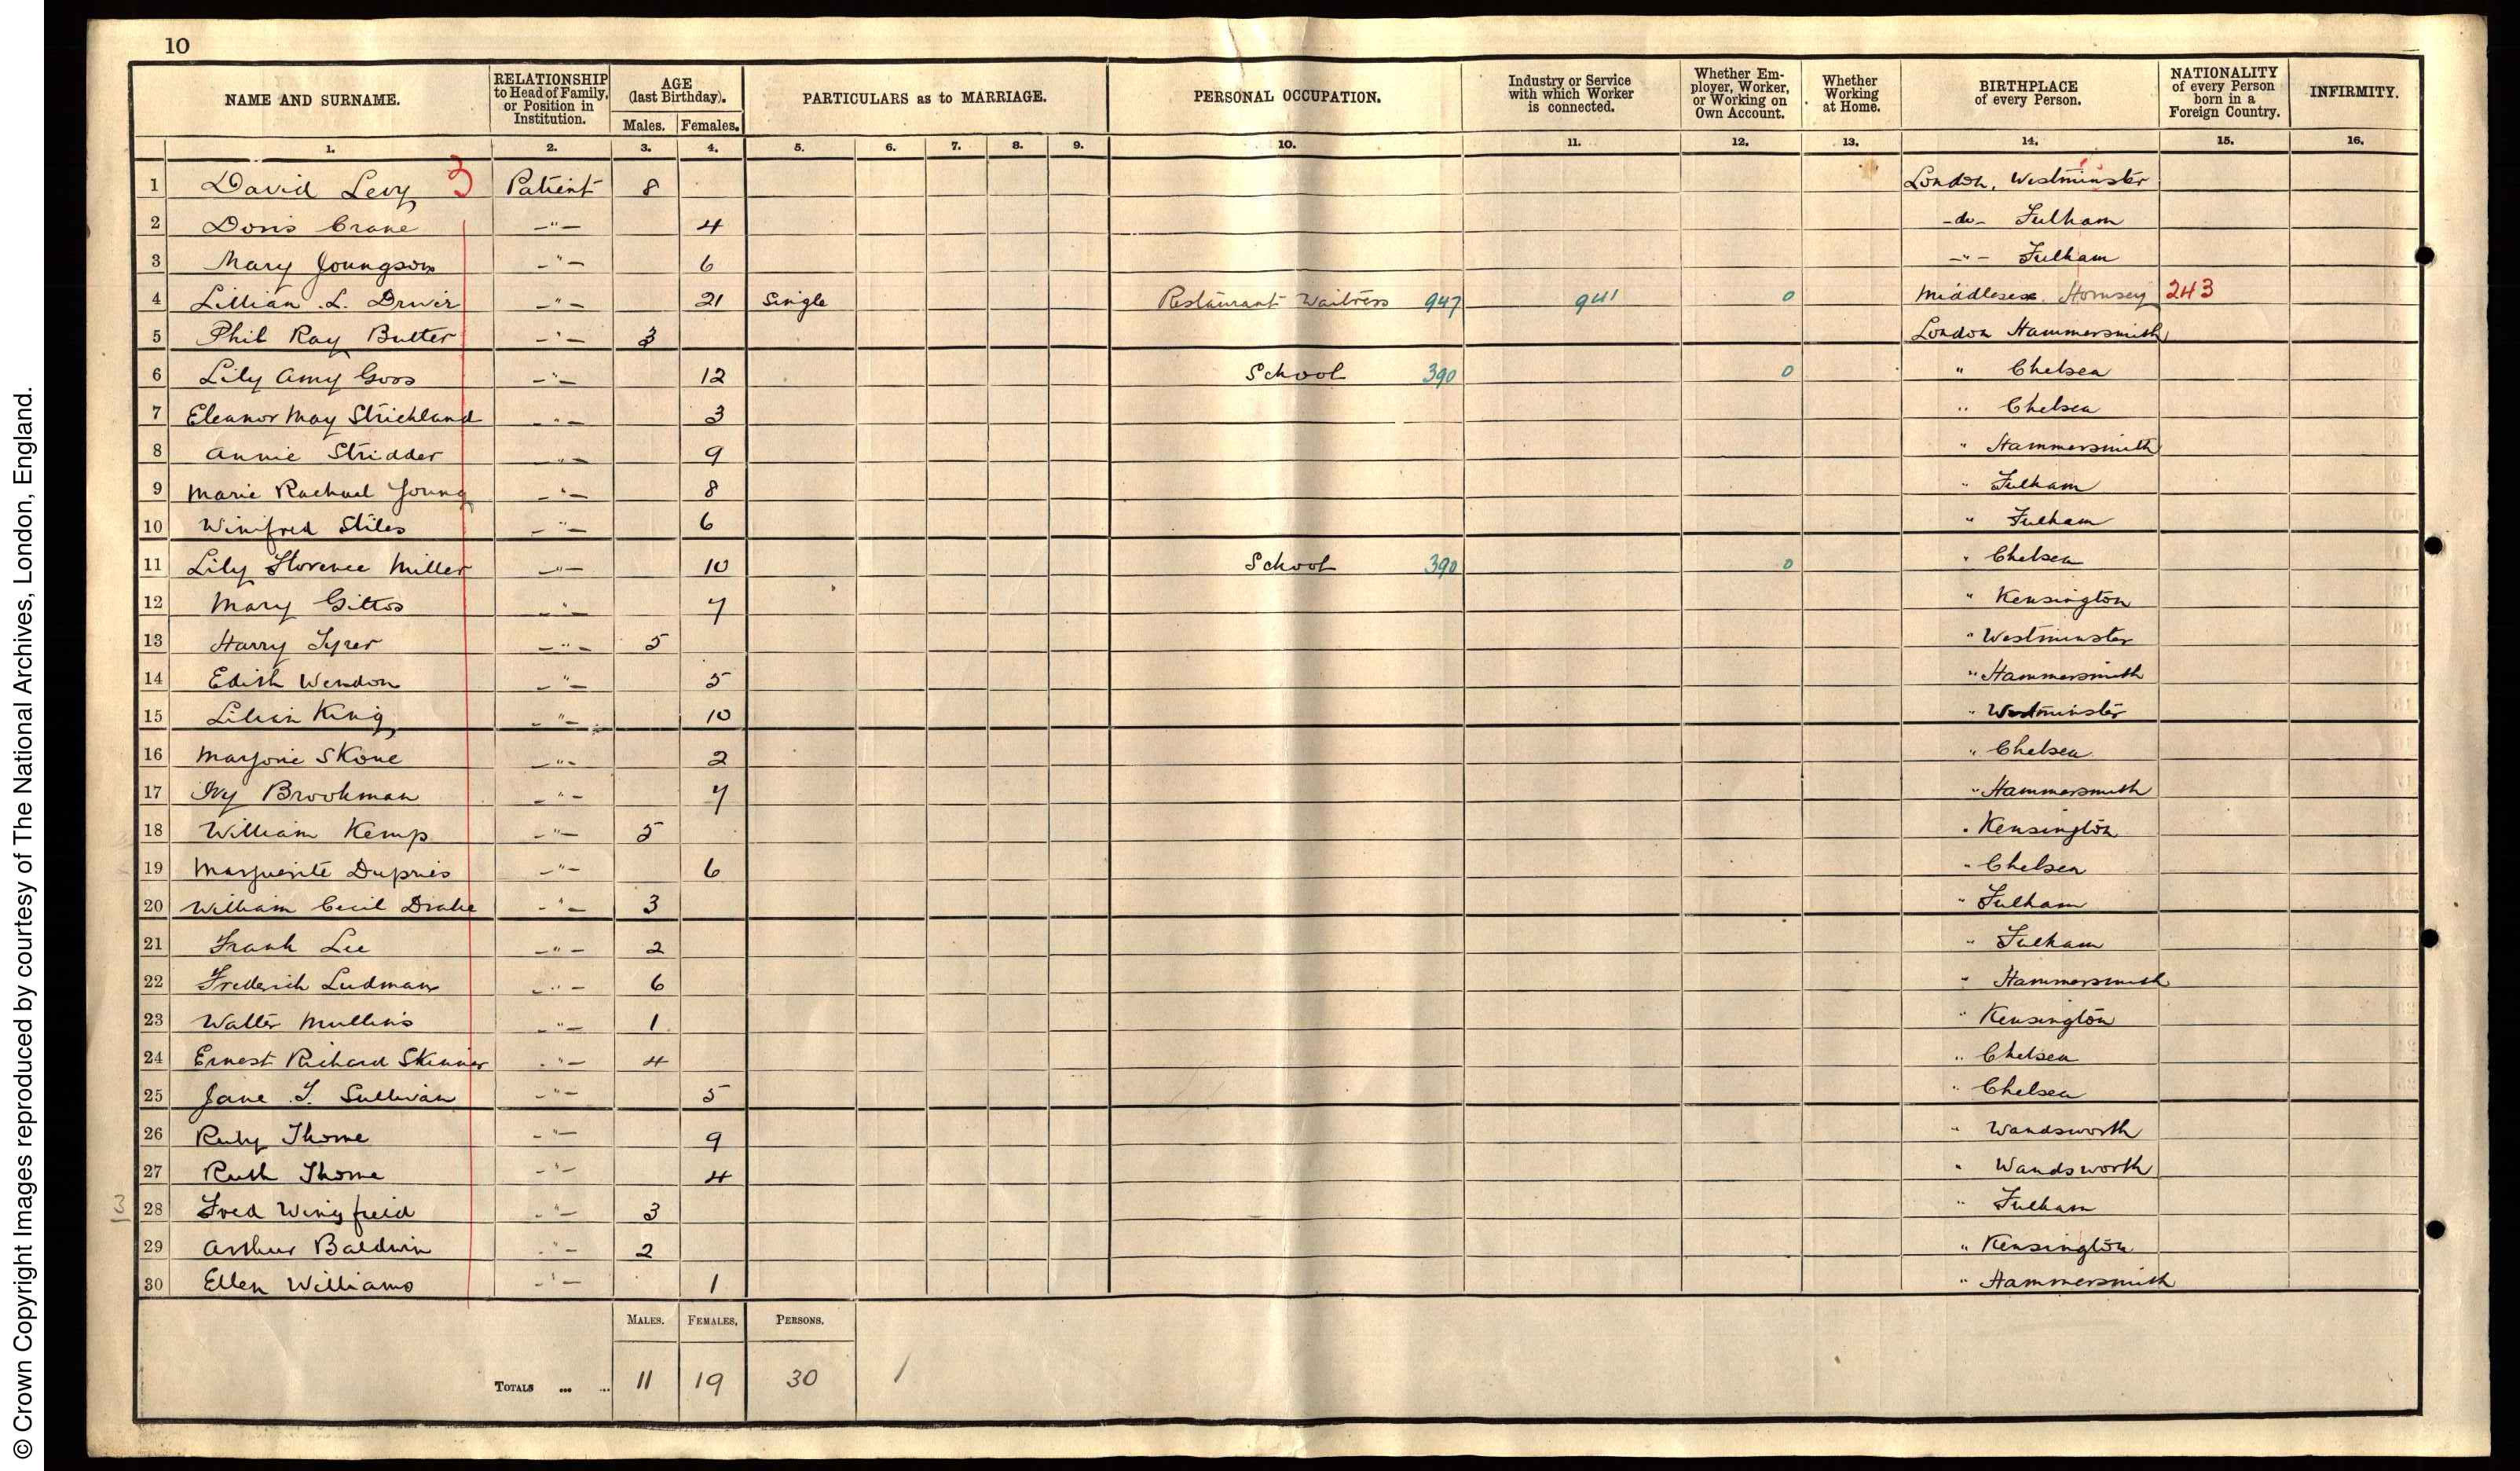 10
NAME AND SURNAME. RELATIONSHIP to Head of Family, or Position in Institution. AGE (last Birthday). Males. Females. PARTICULARS as to MARRIAGE. PERSONAL OCCUPATION. Industry or Service with which Worker is connected. Whether Employer, Worker, or Working on Own Account. Whether Working at Home. BIRTHPLACE of every Person. NATIONALITY of every Person born in a Foreign Country. INFIRMITY.
1. 2. 3. 4. 5. 6. 7. 8. 9. 10. 11. 12. 13. 14. 15. 16.
1 David Levy 3 Patient 8 London, Westminster
2 Doris Crane -"- 4 -do- Fulham
3 Mary Joungson -"- 6 -"- Fulham
4 Lillian L. Driver -"- 21 Single Restaurant Waitress 947 941 0 Middlesex Hornsey 243
5 Phil Ray Butter -"- 3 London Hammersmith
6 Lily Amy Goos -"- 12 School 390 0 " Chelsea
7 Eleanor May Strickland -"- 3 " Chelsea
8 Annie Stridder -"- 9 " Hammersmith
9 Marie Rachael Young -"- 8 " Fulham
10 Winifred Stiles -"- 6 " Fulham
11 Lily Florence Miller -"- 10 School 390 0 " Chelsea
12 Mary Gittos -"- 7 " Kensington
13 Harry Tyrer -"- 5 " Westminster
14 Edith Wendon -"- 5 " Hammersmith
15 Lilian King -"- 10 " Westminster
16 Marjorie Skone -"- 2 " Chelsea
17 Ivy Brookman -"- 7 " Hammersmith
18 William Kemp -"- 5 " Kensington
19 Marguerite Dupries -"- 6 " Chelsea
20 William Cecil Drake -"- 3 " Fulham
21 Frank Lee -"- 2 " Fulham
22 Frederick Ludman -"- 6 " Hammersmith
23 Walter Mullins -"- 1 " Kensington
24 Ernest Richard Skinner -"- 4 " Chelsea
25 Jane T. Sullivan -"- 5 " Chelsea
26 Ruby Thorne -"- 9 " Wandsworth
27 Ruth Thorne -"- 4 " Wandsworth
3
28 Fred Wingfield -"- 3 " Fulham
29 Arthur Baldwin -"- 2 " Kensington
30 Ellen Williams -"- 1 " Hammersmith
MALES. FEMALES. PERSONS.
TOTALS ... ... 11 19 30 /
© Crown Copyright Images reproduced by courtesy of The National Archives, London, England.